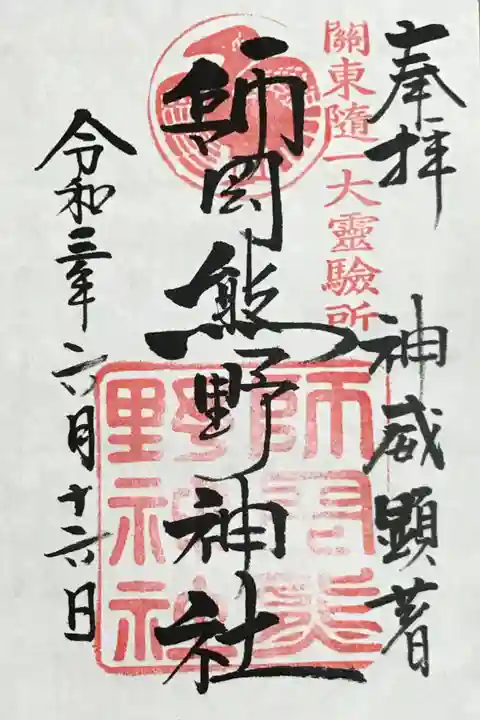 奉拝 神威顕著
關東隨一大靈驗所
師岡熊野神社
令和三年六月十六日
師岡熊野神社